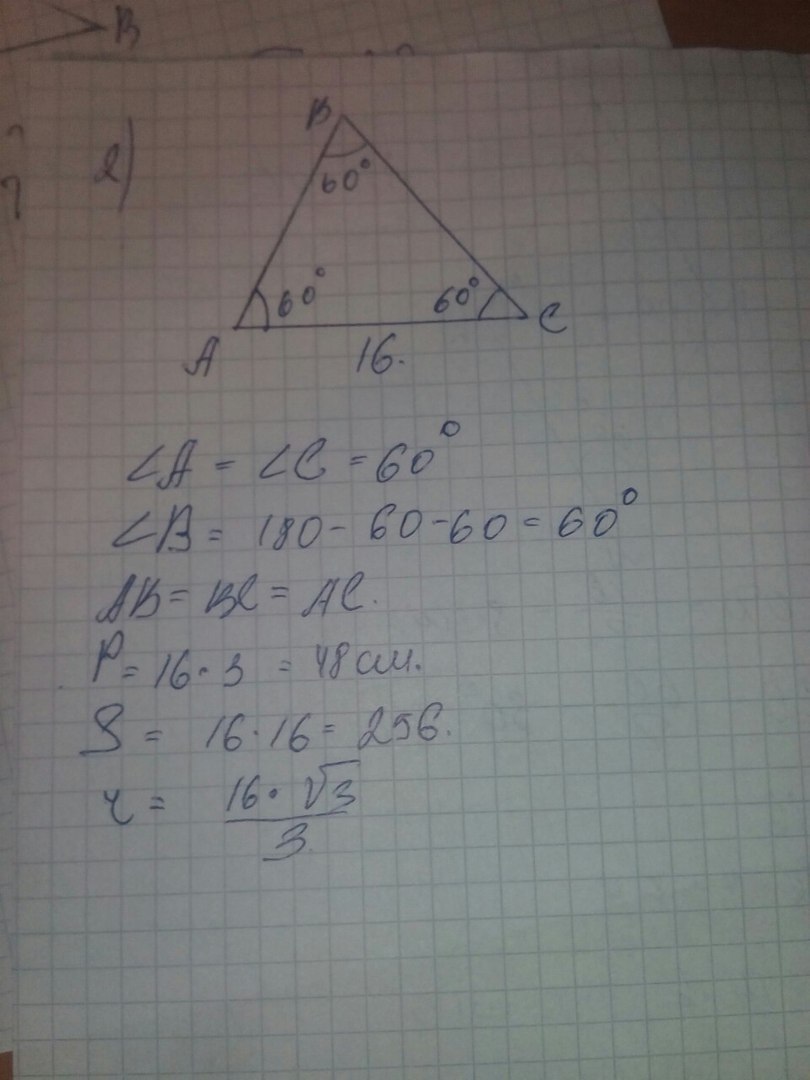 B
2)
B
60°
60°
60°
A
C
16.
∠A = ∠C = 60°
∠B = 180 - 60 - 60 = 60°
AB = BC = AC.
P = 16 · 3 = 48 см.
S = 16 · 16 = 256.
r = 16 · √3 / 3